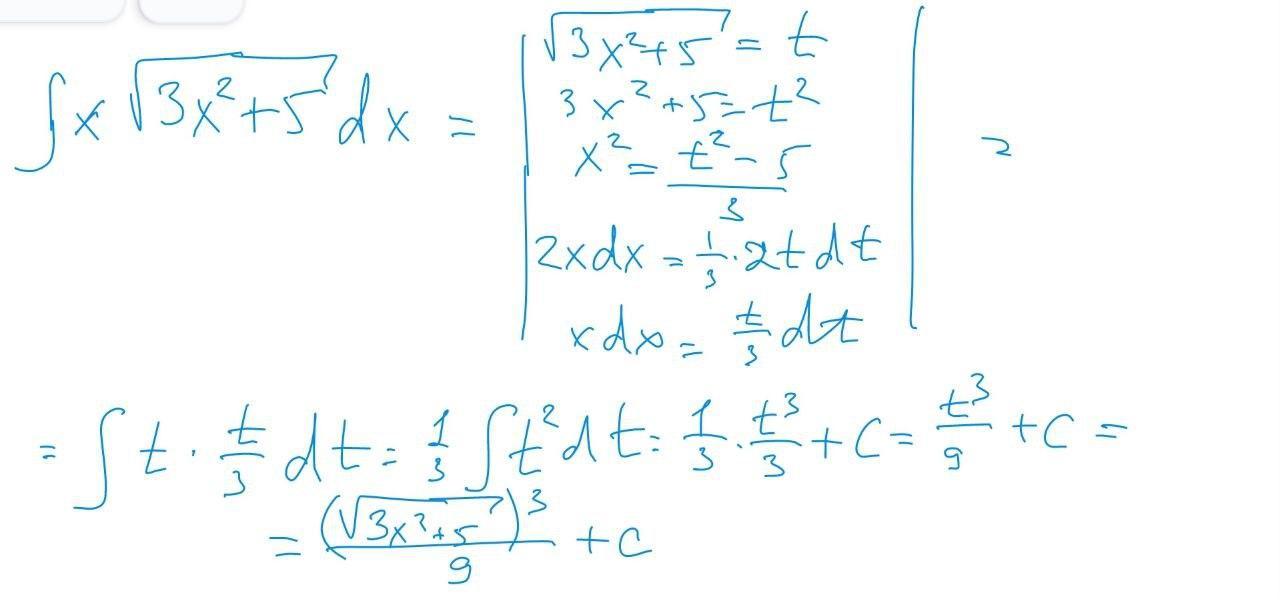 ∫ x √(3x²+5) dx = | √(3x²+5) = t | =
3x²+5 = t²
x² = (t² - 5)/3
2xdx = 1/3 · 2t dt
xdx = t/3 dt
= ∫ t · t/3 dt = 1/3 ∫ t² dt = 1/3 · t³/3 + C = t³/9 + C =
= (√(3x²+5))³/9 + C